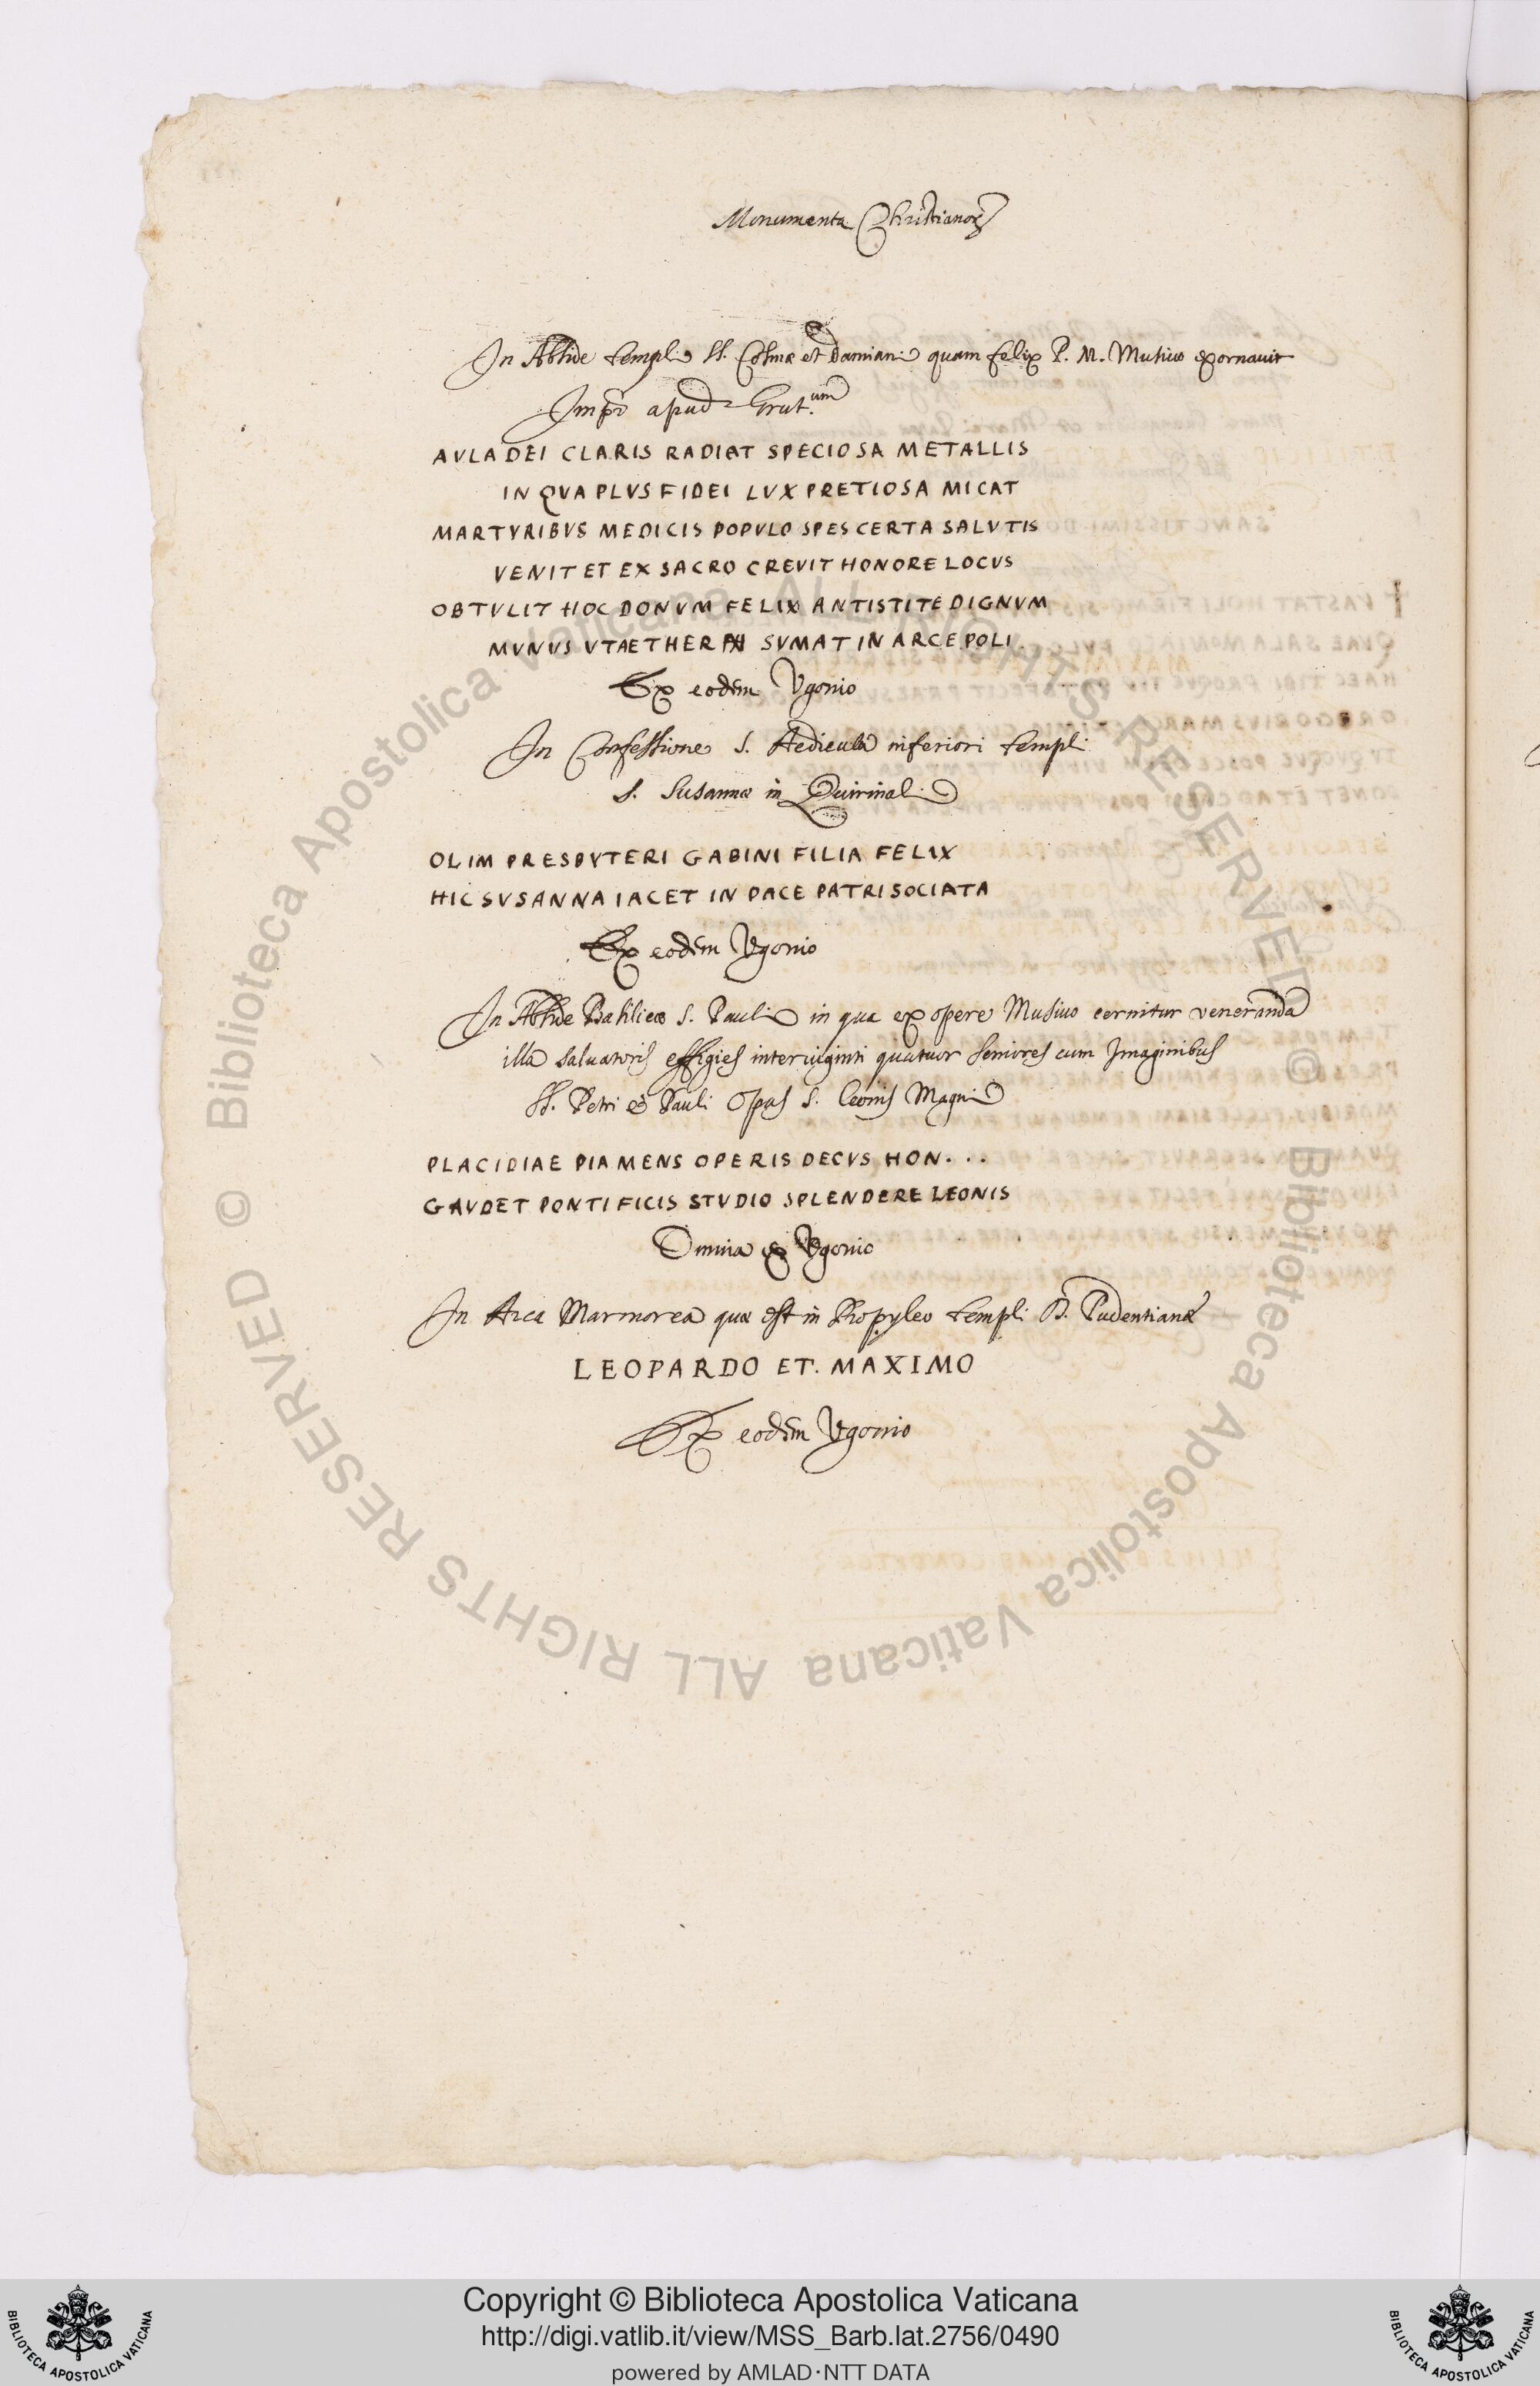 Monumenta Christianoꝝ
In Abside templi SS. Cosmæ et Damiani quam Felix P. M. Musivo exornavit
Imp. apud Grut.um
AVLA DEI CLARIS RADIAT SPECIOSA METALLIS
IN QVA PLVS FIDEI LVX PRETIOSA MICAT
MARTYRIBVS MEDICIS POPVLO SPES CERTA SALVTIS
VENIT ET EX SACRO CREVIT HONORE LOCVS
OBTVLIT HOC DONVM FELIX ANTISTITE DIGNVM
MVNVS VT AETHER SVMAT IN ARCE POLI.
Ex eodem Vgonio
In Confessione S. Aedicula inferiori templi
S. Susannæ in Quirinali
OLIM PRESBVTERI GABINI FILIA FELIX
HIC SVSANNA IACET IN PACE PATRI SOCIATA
Ex eodem Vgonio
In Abside Basilicæ S. Pauli in qua ex opere Musivo cernitur veneranda
illa Salvatoris effigies inter viginti quatuor Seniores cum Imaginibus
SS. Petri et Pauli Opus S. Leonis Magni
PLACIDIAE PIA MENS OPERIS DECVS HON...
GAVDET PONTIFICIS STVDIO SPLENDERE LEONIS
Omnia ex Vgonio
In Arca Marmorea quæ est in Propyleo templi S. Pudentianæ
LEOPARDO ET. MAXIMO
Ex eodem Vgonio
Biblioteca Apostolica Vaticana ALL RIGHTS RESERVED ©
Biblioteca Apostolica Vaticana ALL RIGHTS RESERVED ©
BIBLIOTECA APOSTOLICA VATICANA
Copyright © Biblioteca Apostolica Vaticana
http://digi.vatlib.it/view/MSS_Barb.lat.2756/0490
powered by AMLAD·NTT DATA
BIBLIOTECA APOSTOLICA VATICANA